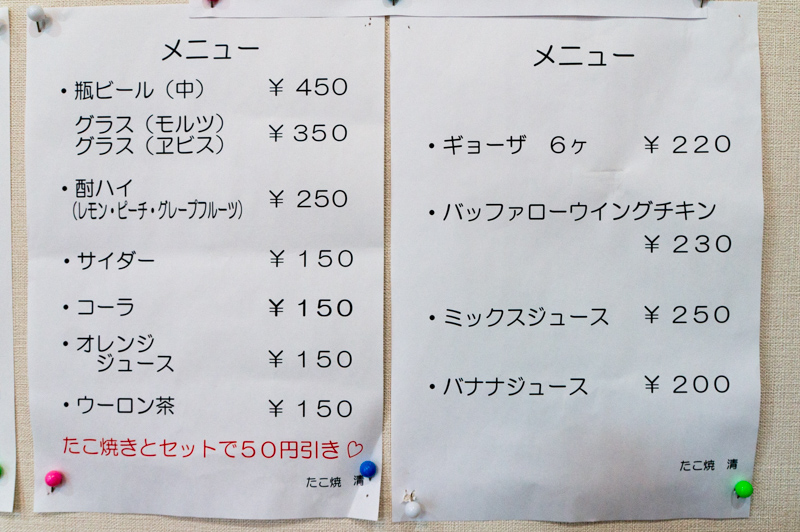 メニュー
・瓶ビール（中） ￥４５０
グラス（モルツ） ￥３５０
グラス（ヱビス）
・酎ハイ ￥２５０
（レモン・ピーチ・グレープフルーツ）
・サイダー ￥１５０
・コーラ ￥１５０
・オレンジ
ジュース ￥１５０
・ウーロン茶 ￥１５０
たこ焼きとセットで５０円引き♡
たこ焼 清
メニュー
・ギョーザ ６ヶ ￥２２０
・バッファローウイングチキン
￥２３０
・ミックスジュース ￥２５０
・バナナジュース ￥２００
たこ焼 清